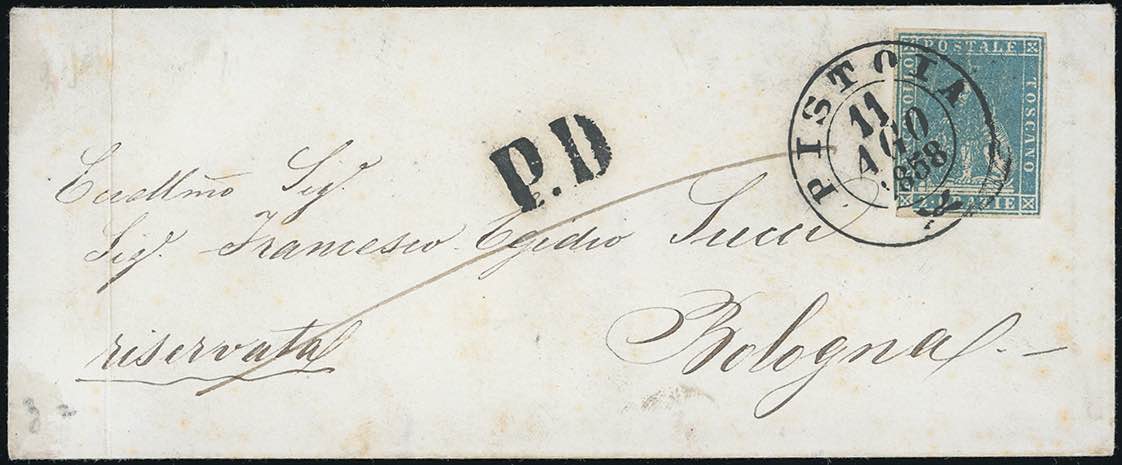 FRANCOBOLLO POSTALE TOSCANO
2. CRAZIE
PISTOIA
11
AGO
1858
P.D
Eccellmo Sigr.
Sigr. Francesco Egidio Succi
Bologna.-
riservata